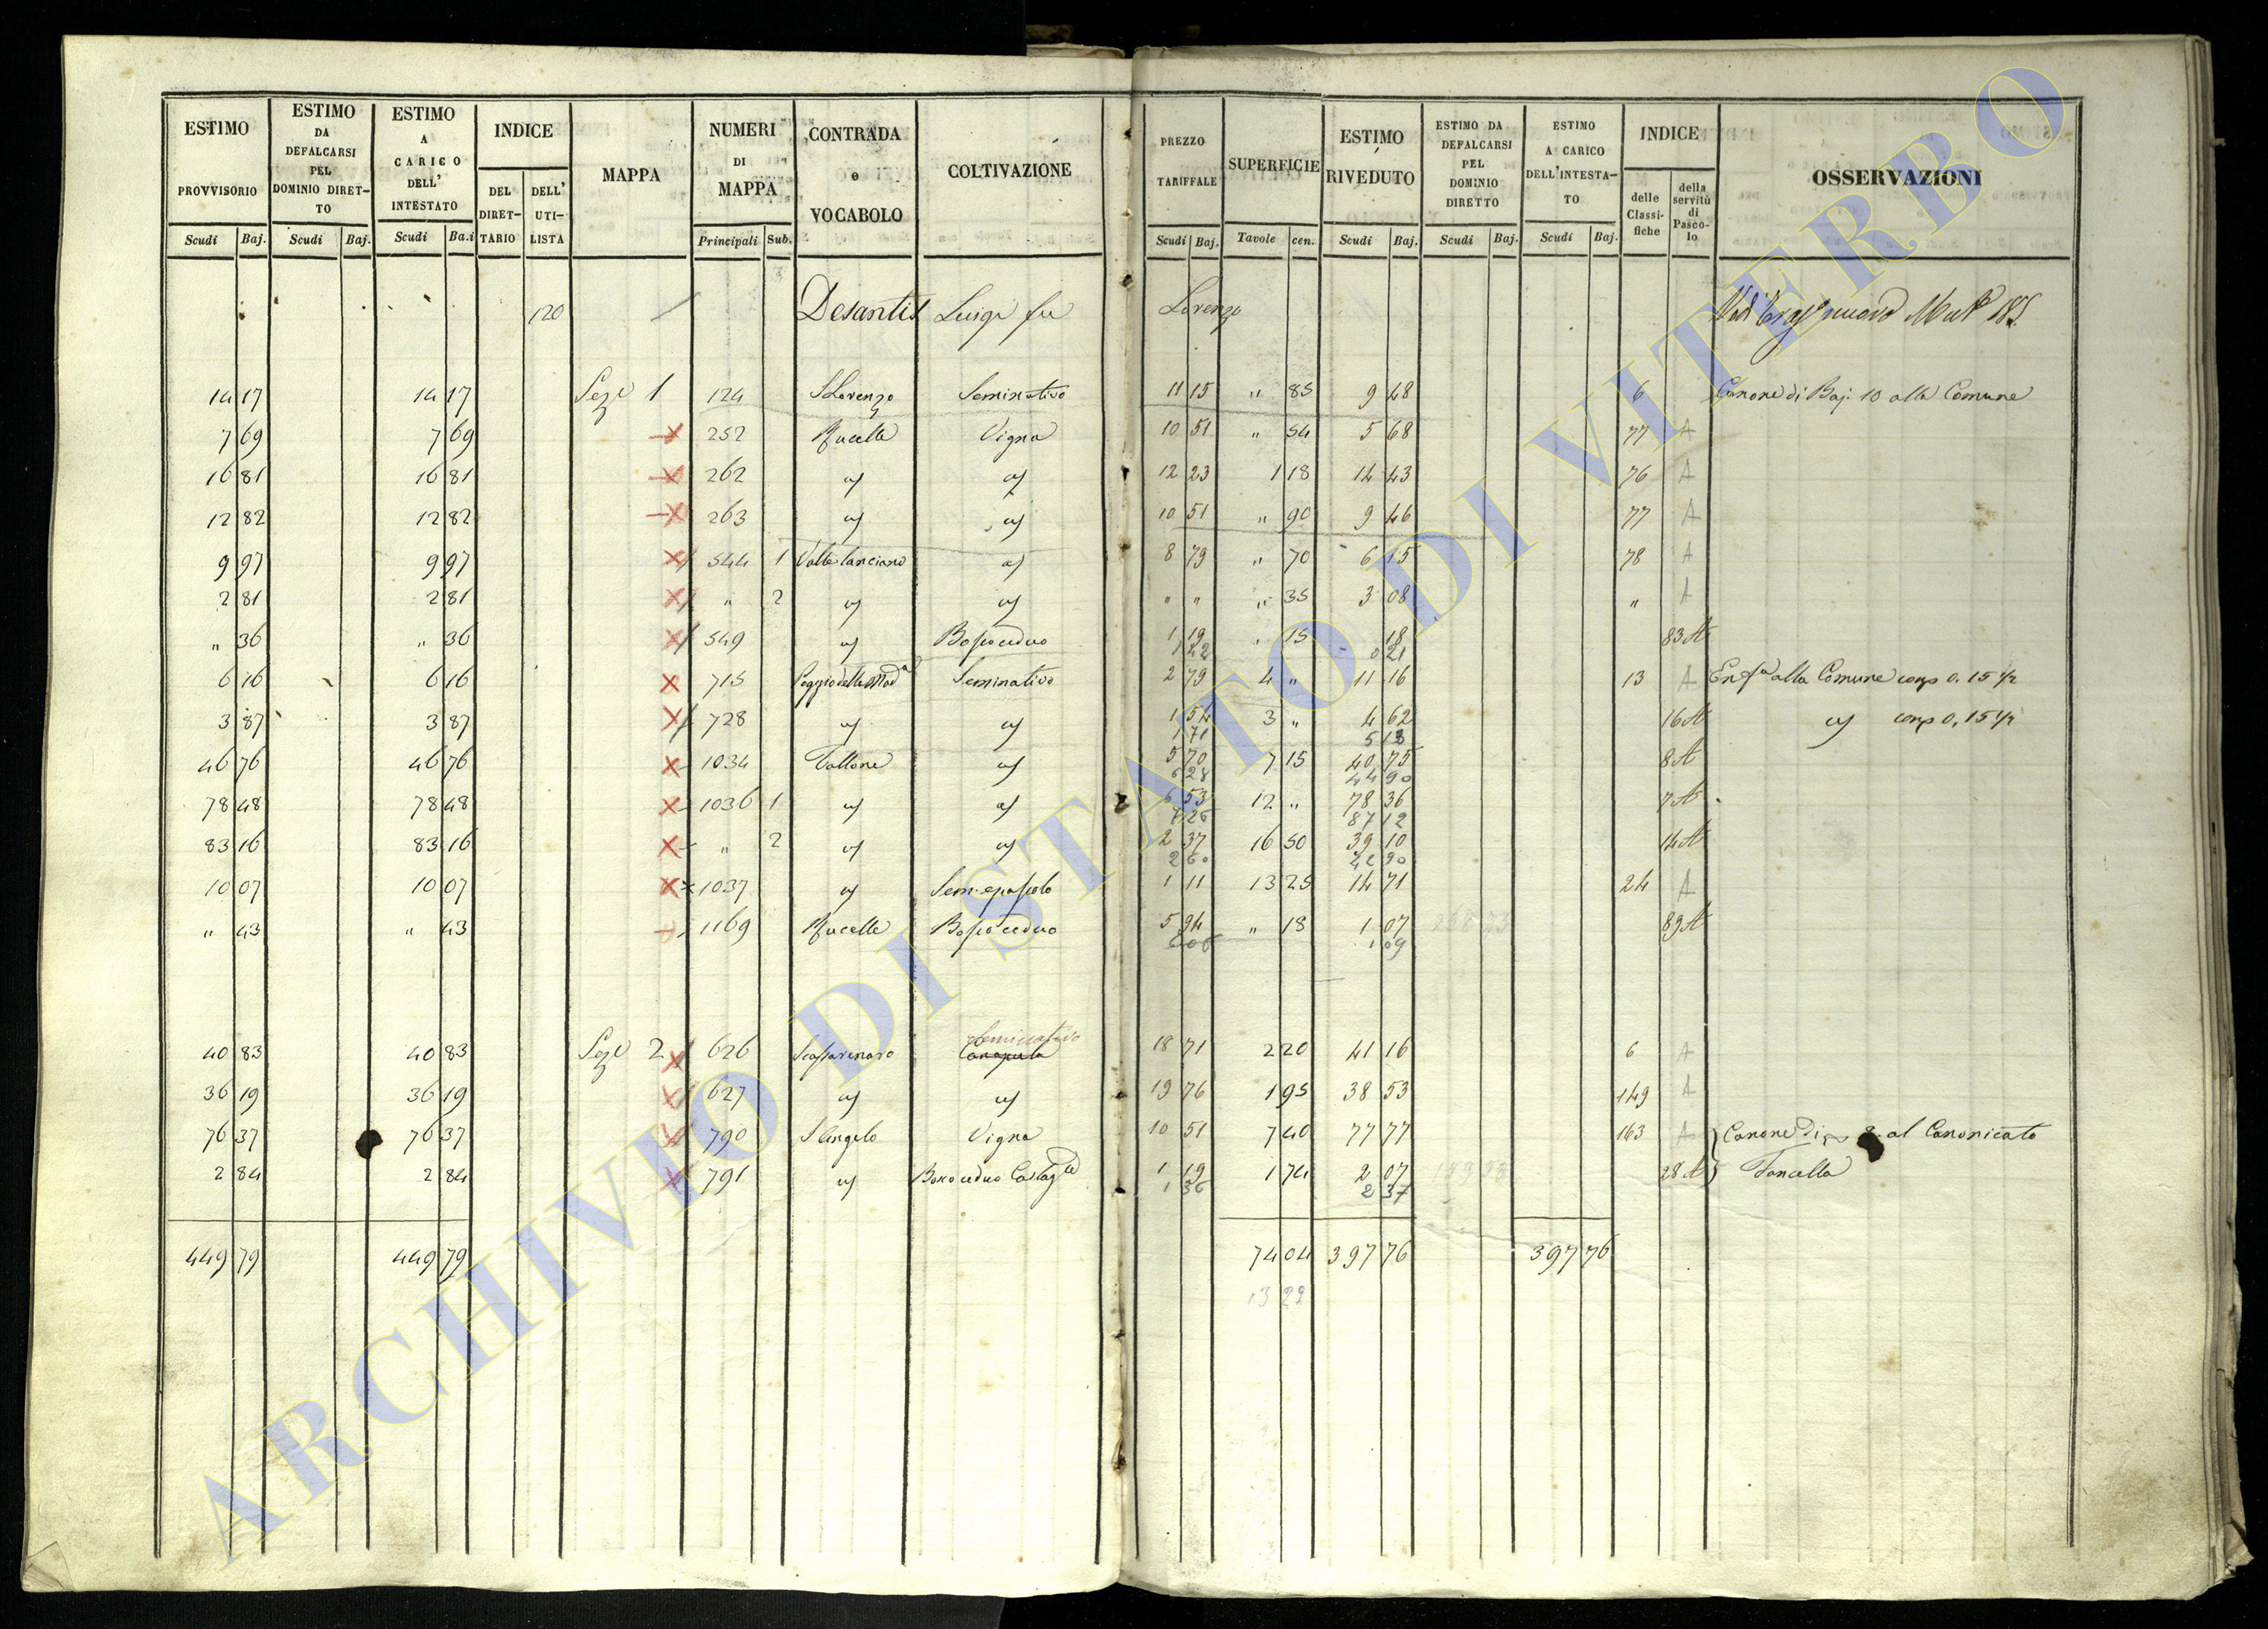 ESTIMO PROVVISORIO Scudi Baj.
ESTIMO DA DEFALCARSI PEL DOMINIO DIRET-TO Scudi Baj.
ESTIMO A CARICO DELL' INTESTATO Scudi Ba.i
INDICE DEL DIRET-TARIO DELL' UTI-LISTA
MAPPA
NUMERI DI MAPPA Principali Sub.
CONTRADA e VOCABOLO
COLTIVAZIONE
PREZZO TARIFFALE Scudi Baj.
SUPERFICIE Tavole cen.
ESTIMO RIVEDUTO Scudi Baj.
ESTIMO DA DEFALCARSI PEL DOMINIO DIRETTO Scudi Baj.
ESTIMO A CARICO DELL'INTESTA-TO Scudi Baj.
INDICE delle Classi-fiche della servitù di Pasco-lo
OSSERVAZIONI
120 Desantis Luigi fu Lorenzo nuovo
14 17 14 17 Sez.e 1 124 S Lorenzo Seminativo 11 15 " 85 9 48 6 Canone di Baj: 10 alla Comune
7 69 7 69 252 Vigna 10 51 " 54 5 68 77 A
16 81 16 81 262 12 23 1 18 14 43 76 A
12 82 12 82 263 10 51 " 90 9 46 77 A
9 97 9 97 544 1 Valle lanciano 8 79 " 70 6 15 78 A
2 81 2 81 " 2 " " " 35 3 08 " A
" 36 " 36 549 Bosco ceduo 1 19 " 15 18 83 A
1 42 0 21
6 16 6 16 715 Poggio della Mad.a Seminativo 2 79 4 " 11 16 13 A alla Comune 0. 15 1/2
3 87 3 87 728 1 54 3 " 4 62 16 A 0, 15 1/2
1 71 5 13
46 76 46 76 1034 Vallone 5 70 7 15 40 75 8 A
6 28 44 90
78 48 78 48 1036 1 6 53 12 " 78 36 7 A
7 26 87 12
83 16 83 16 " 2 2 37 16 50 39 10 14 A
2 60 42 90
10 07 10 07 1037 Sem. e pascolo 1 11 13 25 14 71 24 A
" 43 " 43 1169 Bosco ceduo 5 94 " 18 1 07 89 A
6 06 1 09
Seminativo
40 83 40 83 Sez.e 2 626 Canapula 18 71 2 20 41 16 6 A
36 19 36 19 627 19 76 1 95 38 53 149 A
76 37 76 37 790 S Angelo Vigna 10 51 7 40 77 77 163 A Canone di al Canonicato
2 84 2 84 791 Bosco ceduo 1 19 1 74 2 07 28 A
1 36 2 37
449 79 449 79 74 04 397 76 397 76
13 29
ARCHIVIO DI STATO DI VITERBO